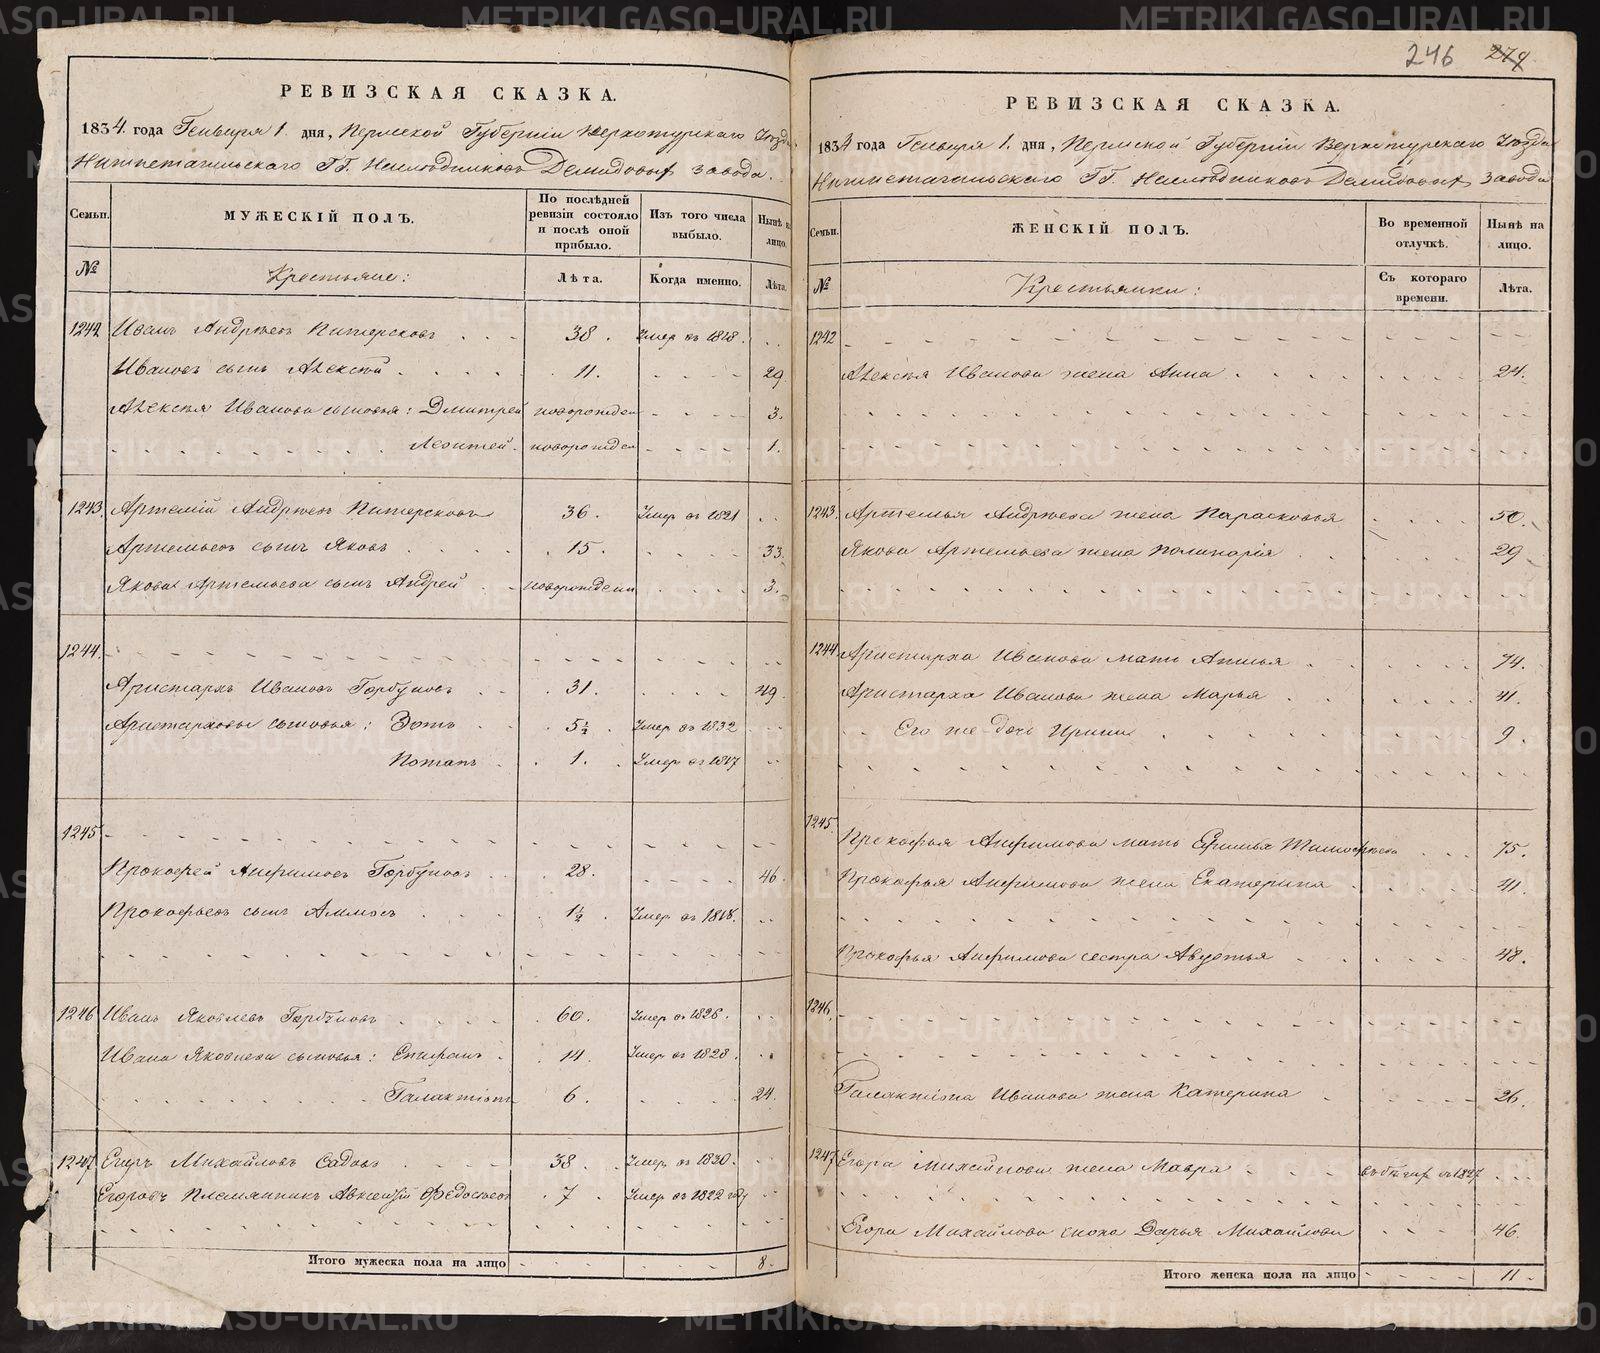 246 278
РЕВИЗСКАЯ СКАЗКА.
1834. года Генваря 1. дня, Пермской Губерніи Верхотурскаго Уезда
Нижнетагильскаго ГГ. Наследниковъ Демидовых завода.
Семьи.
МУЖЕСКІЙ ПОЛЪ.
По послѣдней ревизіи состояло и послѣ оной прибыло.
Изъ того числа выбыло.
Нынѣ на лицо.
№
Крестьяне:
Лѣта.
Когда именно.
Лѣта.
1242 Иванъ Андреевъ Питерсковъ 38. Умер въ 1818.
Ивановъ сынъ Алексей 11. 29.
Алексея Иванова сыновья: Дмитрей новорожден 3.
Леонтей новорожден 1.
1243. Артемій Андреевъ Питерсковъ 36. Умер въ 1821
Артемьевъ сынъ Яковъ 15. 33.
Якова Артемьева сынъ Андрей новорожден 3.
1244.
Аристархъ Ивановъ Горбуновъ 31. 49.
Аристарховы сыновья: Зотъ 5½ Умер въ 1832
Потапъ 1. Умер въ 1817
1245
Прокофей Анфимовъ Горбуновъ 28. 46.
Прокофьевъ сынъ Аммосъ 1½ Умер въ 1818.
1246 Иванъ Яковлевъ Горбуновъ 60. Умер въ 1826.
Ивана Яковлева сыновья: Епифанъ 14. Умер въ 1828.
Галактіонъ 6. 24.
1247 Егоръ Михайловъ Садовъ 38. Умер въ 1830.
Егоровъ племянникъ Авксентій Федосеевъ 7 Умер въ 1822 году
Итого мужеска пола на лицо 8.
РЕВИЗСКАЯ СКАЗКА.
1834 года Генваря 1. дня, Пермской Губерніи Верхотурскаго Уезда
Нижнетагильскаго ГГ. Наследниковъ Демидовых завода
Семьи.
ЖЕНСКІЙ ПОЛЪ.
Во временной отлучкѣ.
Нынѣ на лицо.
№
Крестьянки:
Съ котораго времени.
Лѣта.
1242
Алексея Иванова жена Анна 24.
1243. Артемья Андреева жена Парасковья 50.
Якова Артемьева жена Полинарія 29
1244 Аристарха Иванова мать Анисья 74.
Аристарха Иванова жена Марья 41.
Его же дочь Ирина 9.
1245.
Прокофья Анфимова мать Ефимья Тимофеева 75.
Прокофья Анфимова жена Екатерина 41.
Прокофья Анфимова сестра Авдотья 48.
1246.
Галактіона Иванова жена Катерина 26.
1247 Егора Михайлова жена Мавра въ бегах с 1827
Егора Михайлова сноха Дарья Михайлова 46.
Итого женска пола на лицо 11.
METRIKI.GASO-URAL.RU